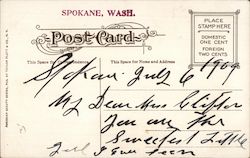 SPOKANE, WASH.
Post Card
PLACE
STAMP HERE
DOMESTIC
ONE CENT
FOREIGN
TWO CENTS
This Space for
This Space for Name and Address
Spokane July 6 1909
My Dear Miss
You are the
Sweetest Little
I Ever seen